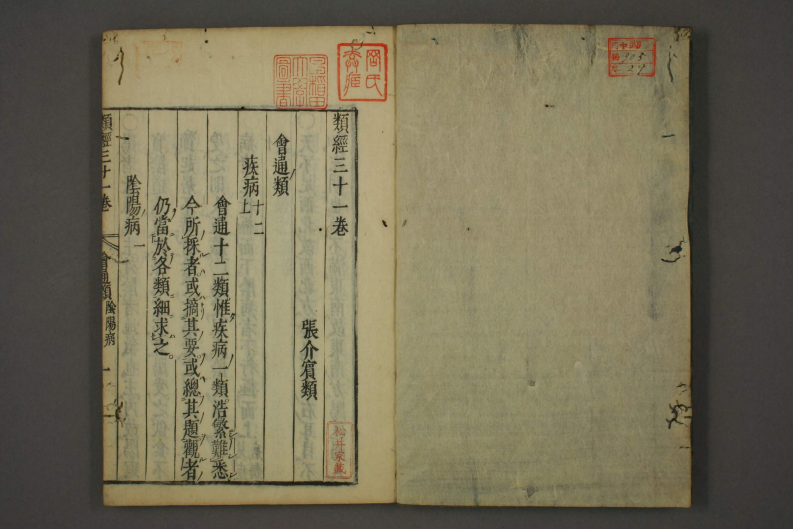 類經三十一卷
張介賔類
會通類
疾病十二上
會通十二類惟疾病一類浩繁難悉
今所採者或摘其要或總其題觀者
仍當於各類細求之
陰陽病一
類經三十一卷 會通類 陰陽病 一
松井家藏